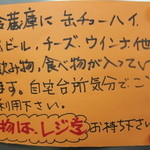 冷蔵庫に缶チューハイ、
ビール、チーズ、ウインナ、他
飲み物、食べ物が入ってい
ます。自宅台所気分でご
利用下さい。
物は、レジ迄お持ち下さい